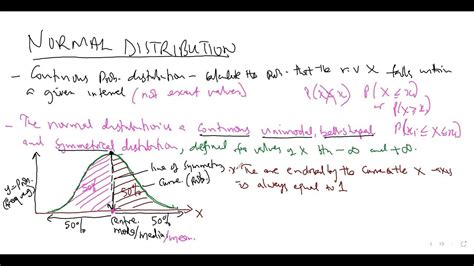 NORMAL DISTRIBUTION
- Continuous Prob. distribution - calculate the prob. that the r.v X falls within
a given interval (not exact values) P(X=x) P(X≤x₁)
or P(X≥x₁)
P(x₁≤X≤x₂)
- The normal distribution is a Continuous unimodal, bell shaped
and Symmetrical distribution, defined for values of X btn -∞ and +∞.
line of Symmetry
Curve (Prob.)
The area enclosed by the Curve & the X-axis
is always equal to 1
y = Prob.
(frequency)
50% 50%
X
50% 50%
Centre
mode/median/mean